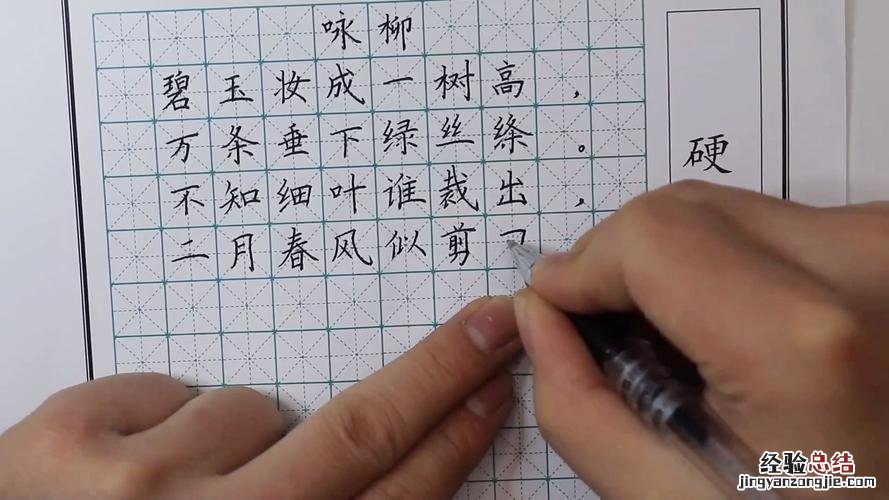 咏柳
碧玉妆成一树高，
万条垂下绿丝绦。
不知细叶谁裁出，
二月春风似剪
硬
经验总结
jingyanzongjie.com